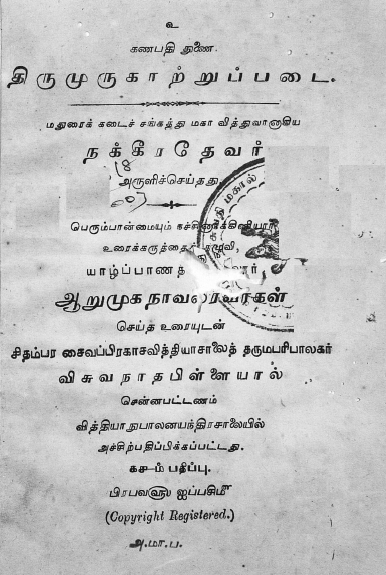 உ
கணபதி துணை.
திருமுருகாற்றுப்படை.
மதுரைக் கடைச் சங்கத்து மகா வித்துவானாகிய
நக்கீரதேவர்
அருளிச்செய்தது
பெரும்பான்மையும் நச்சினார்க்கினியார்
உரைக்கருத்தைத் தழுவி,
யாழ்ப்பாணத்து
ஆறுமுகநாவலரவர்கள்
செய்த உரையுடன்
சிதம்பர சைவப்பிரகாசவித்தியாசாலைத் தருமபரிபாலகர்
விசுவநாதபிள்ளையால்
சென்னபட்டணம்
வித்தியாநுபாலனயந்திரசாலையில்
அச்சிற்பதிப்பிக்கப்பட்டது.
கச-ம் பதிப்பு.
பிரபவ௵ ஐப்பசி௴
(Copyright Registered.)
அ.மா.ப.